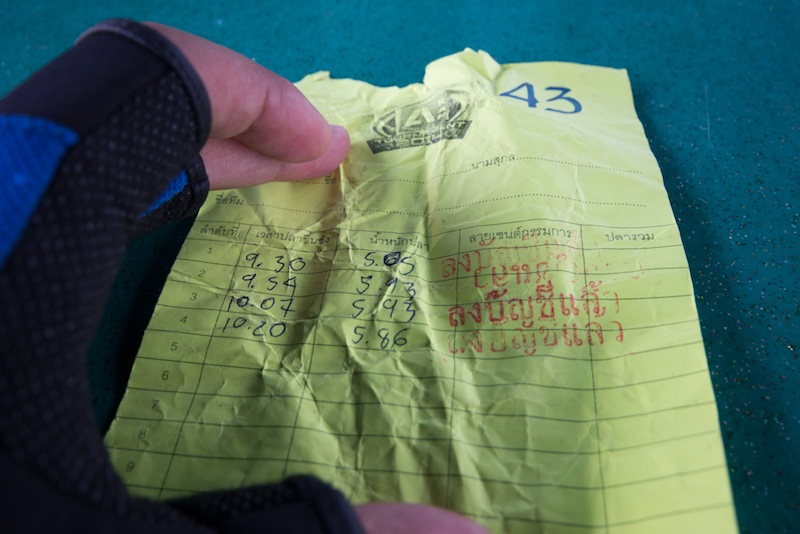 43
ชื่อ นามสกุล
ชื่อทีม
ลำดับที่ เวลาปลาขึ้นชั่ง น้ำหนักปลา ลายเซนต์กรรมการ ปลารวม
1 9.30
2 9.54 5.93
3 10.07 5.93 ลงบัญชีแล้ว
4 10.20 5.86 ลงบัญชีแล้ว
5
6
7
8
9